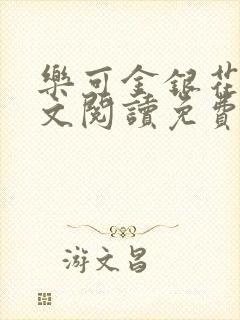 樂可金銀花
文閱讀免費
游文昌